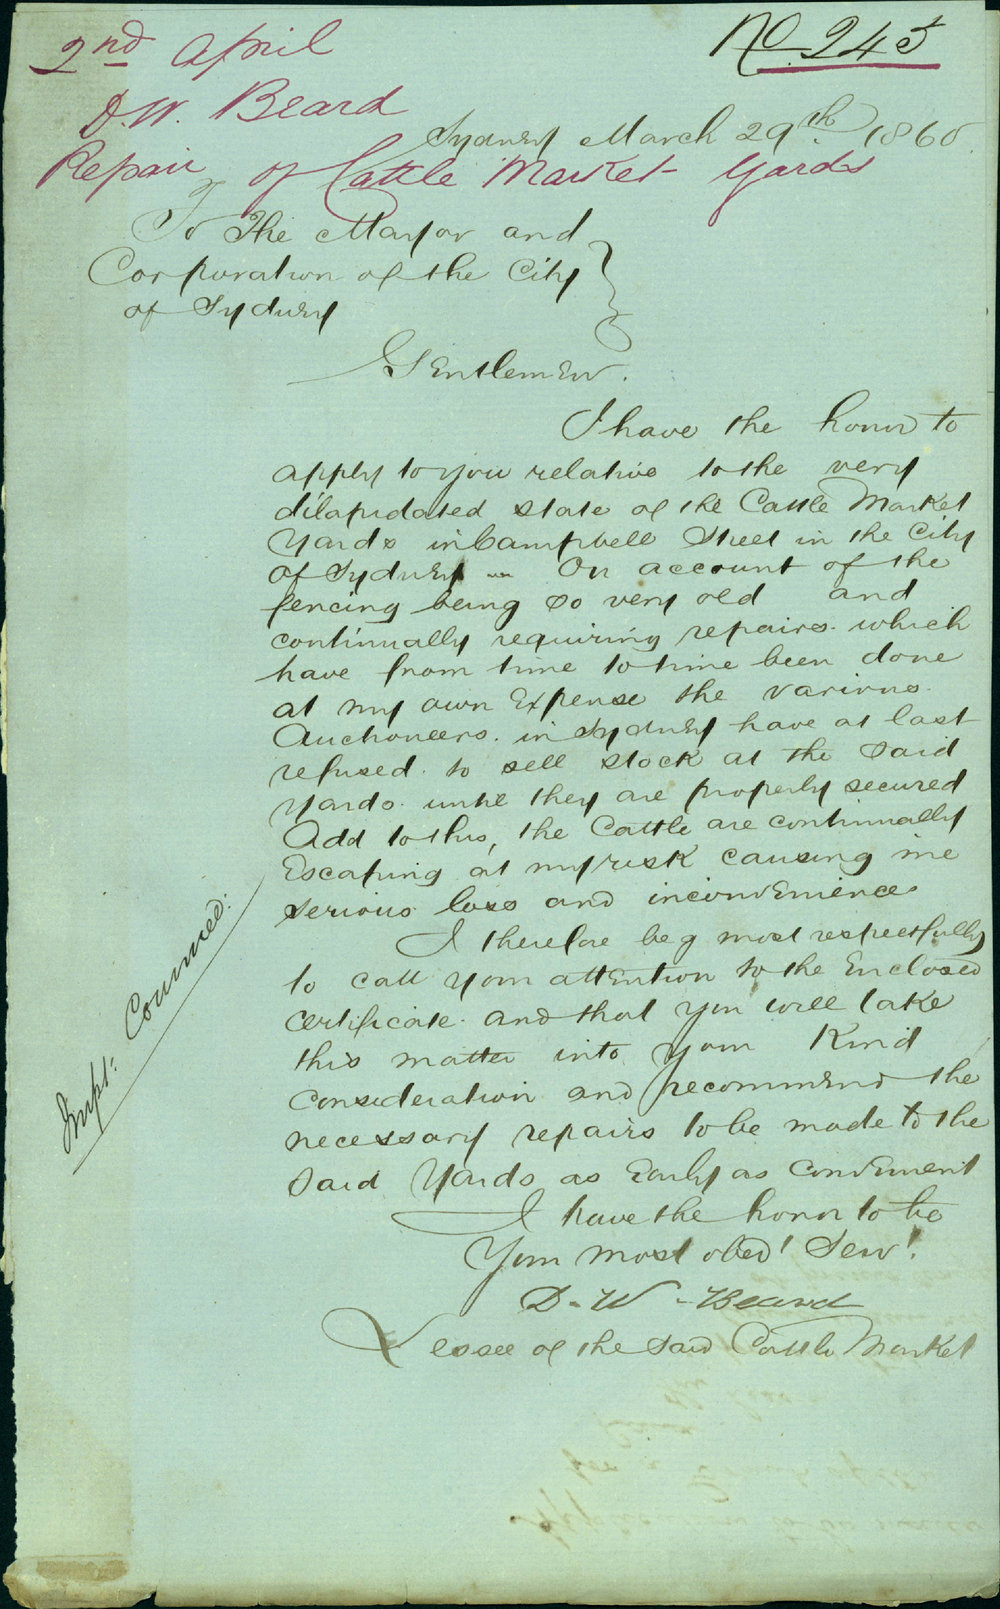 2nd April
No 245
D.W. Beard
Sydney March 29th 1860
Repair of Cattle Market Yards
To The Mayor and
Corporation of the City
of Sydney
Gentlemen.
I have the honor to
apply to you relative to the very
dilapidated state of the Cattle Market
Yards in Campbell Street in the City
of Sydney — On account of the
fencing being so very old and
continually requiring repairs which
have from time to time been done
at my own Expense the various
Auctioneers in Sydney have at last
refused to sell stock at the said
Yards until they are properly secured
Add to this, the Cattle are continually
Escaping at my risk causing me
serious loss and inconvenience
I therefore beg most respectfully
to call your attention to the Enclosed
Certificate and that you will take
this matter into your Kind
Consideration and recommend the
necessary repairs to be made to the
said Yards as Early as convenient
I have the honor to be
Your most obed't Serv't.
D. W. Beard
Lessee of the said Cattle Market